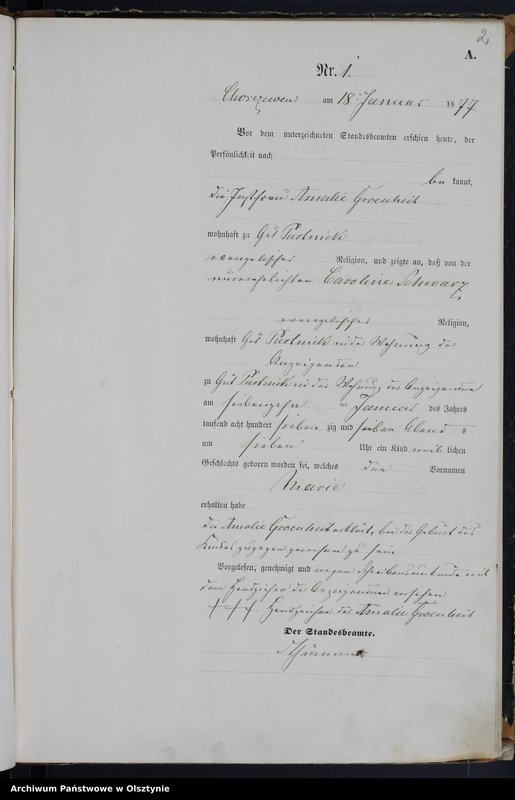 2
A.
Nr. 1.
Chorczewen am 18 Januar 1877
Vor dem unterzeichneten Standesbeamten erschien heute, der
Persönlichkeit nach
be kannt,
die Amalie Groenheit
wohnhaft zu Gut Pustnick
evangelischer Religion, und zeigte an, daß von der
unverehelichten Caroline Schwarz
evangelischer Religion,
wohnhaft Gut Pustnick in der Wohnung der
Anzeigenden
zu Gut Pustnick in der Wohnung der Anzeigenden
am siebenzehn ten Januar des Jahres
tausend acht hundert sieben zig und sieben Abend s
um sieben Uhr ein Kind weib lichen
Geschlechts geboren worden sei, welches den Vornamen
Marie
erhalten habe
die Amalie Groenheit erklärt, bei der Geburt des
Kindes zugegen gewesen zu sein
Vorgelesen, genehmigt und wegen Schreibensunkunde mit
dem Handzeichen der Anzeigenden versehen
+++ Handzeichen der Amalie Groenheit
Der Standesbeamte.
Archiwum Państwowe w Olsztynie